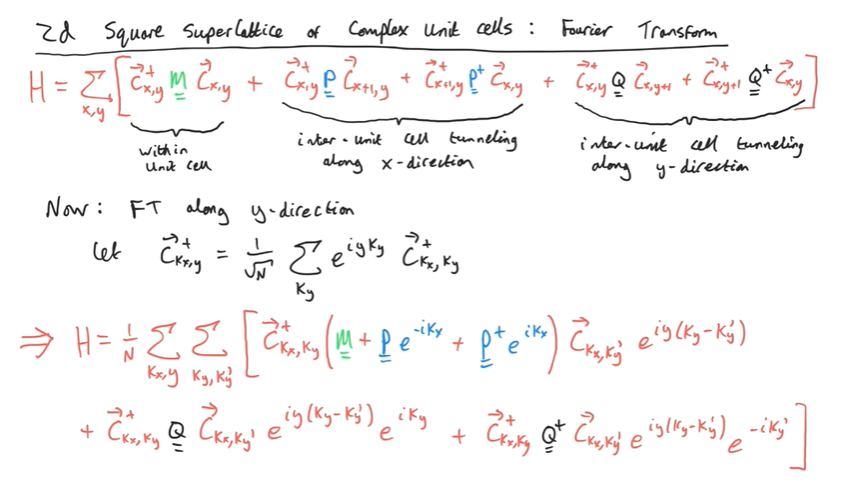 2d Square Superlattice of Complex Unit cells : Fourier Transform
H = ∑_{x,y} [ \vec{C}^†_{x,y} \underline{\underline{M}} \vec{C}_{x,y} + \vec{C}^†_{x,y} \underline{\underline{P}} \vec{C}_{x+1,y} + \vec{C}^†_{x+1,y} \underline{\underline{P}}^† \vec{C}_{x,y} + \vec{C}^†_{x,y} \underline{\underline{Q}} \vec{C}_{x,y+1} + \vec{C}^†_{x,y+1} \underline{\underline{Q}}^† \vec{C}_{x,y} ]
within unit cell
inter-unit cell tunneling along x-direction
inter-unit cell tunneling along y-direction
Now : FT along y-direction
let \vec{C}^†_{Kx,y} = \frac{1}{\sqrt{N}} ∑_{Ky} e^{iyKy} \vec{C}^†_{Kx,Ky}
⇒ H = \frac{1}{N} ∑_{Kx,y} ∑_{Ky,Ky'} [ \vec{C}^†_{Kx,Ky} ( \underline{\underline{M}} + \underline{\underline{P}} e^{-iKx} + \underline{\underline{P}}^† e^{iKx} ) \vec{C}_{Kx,Ky'} e^{iy(Ky-Ky')}
+ \vec{C}^†_{Kx,Ky} \underline{\underline{Q}} \vec{C}_{Kx,Ky'} e^{iy(Ky-Ky')} e^{iKy} + \vec{C}^†_{Kx,Ky} \underline{\underline{Q}}^† \vec{C}_{Kx,Ky'} e^{iy(Ky-Ky')} e^{-iKy'} ]